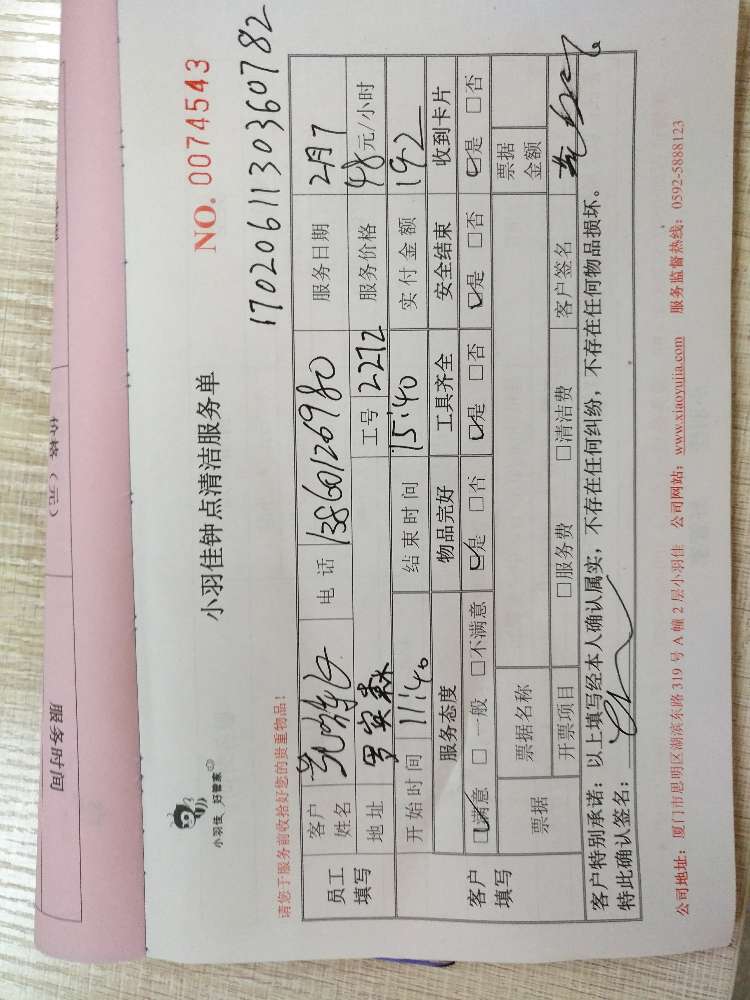 服务时间
价格（元）
小羽佳 好管家
小羽佳钟点清洁服务单
NO. 0074543
请您于服务前收拾好您的贵重物品！
17020611303607 82
员工填写
客户姓名
电 话 13860126980
服务日期 2月7
地 址
工号 2272
服务价格 48元/小时
开始时间 11:40
结束时间 15:40
实付金额 192
客户填写
服务态度 物品完好 工具齐全 安全结束 收到卡片
☑满意 □一般 □不满意 ☑是 □否 ☑是 □否 ☑是 □否 ☑是 □否
票据 票据名称 票据金额
开票项目 □服务费 □清洁费 客户签名
客户特别承诺：以上填写经本人确认属实，不存在任何纠纷，不存在任何物品损坏。
特此确认签名：
公司地址：厦门市思明区湖滨东路 319 号 A 幢 2 层小羽佳 公司网站：www.xiaoyujia.com 服务监督热线：0592-5888123